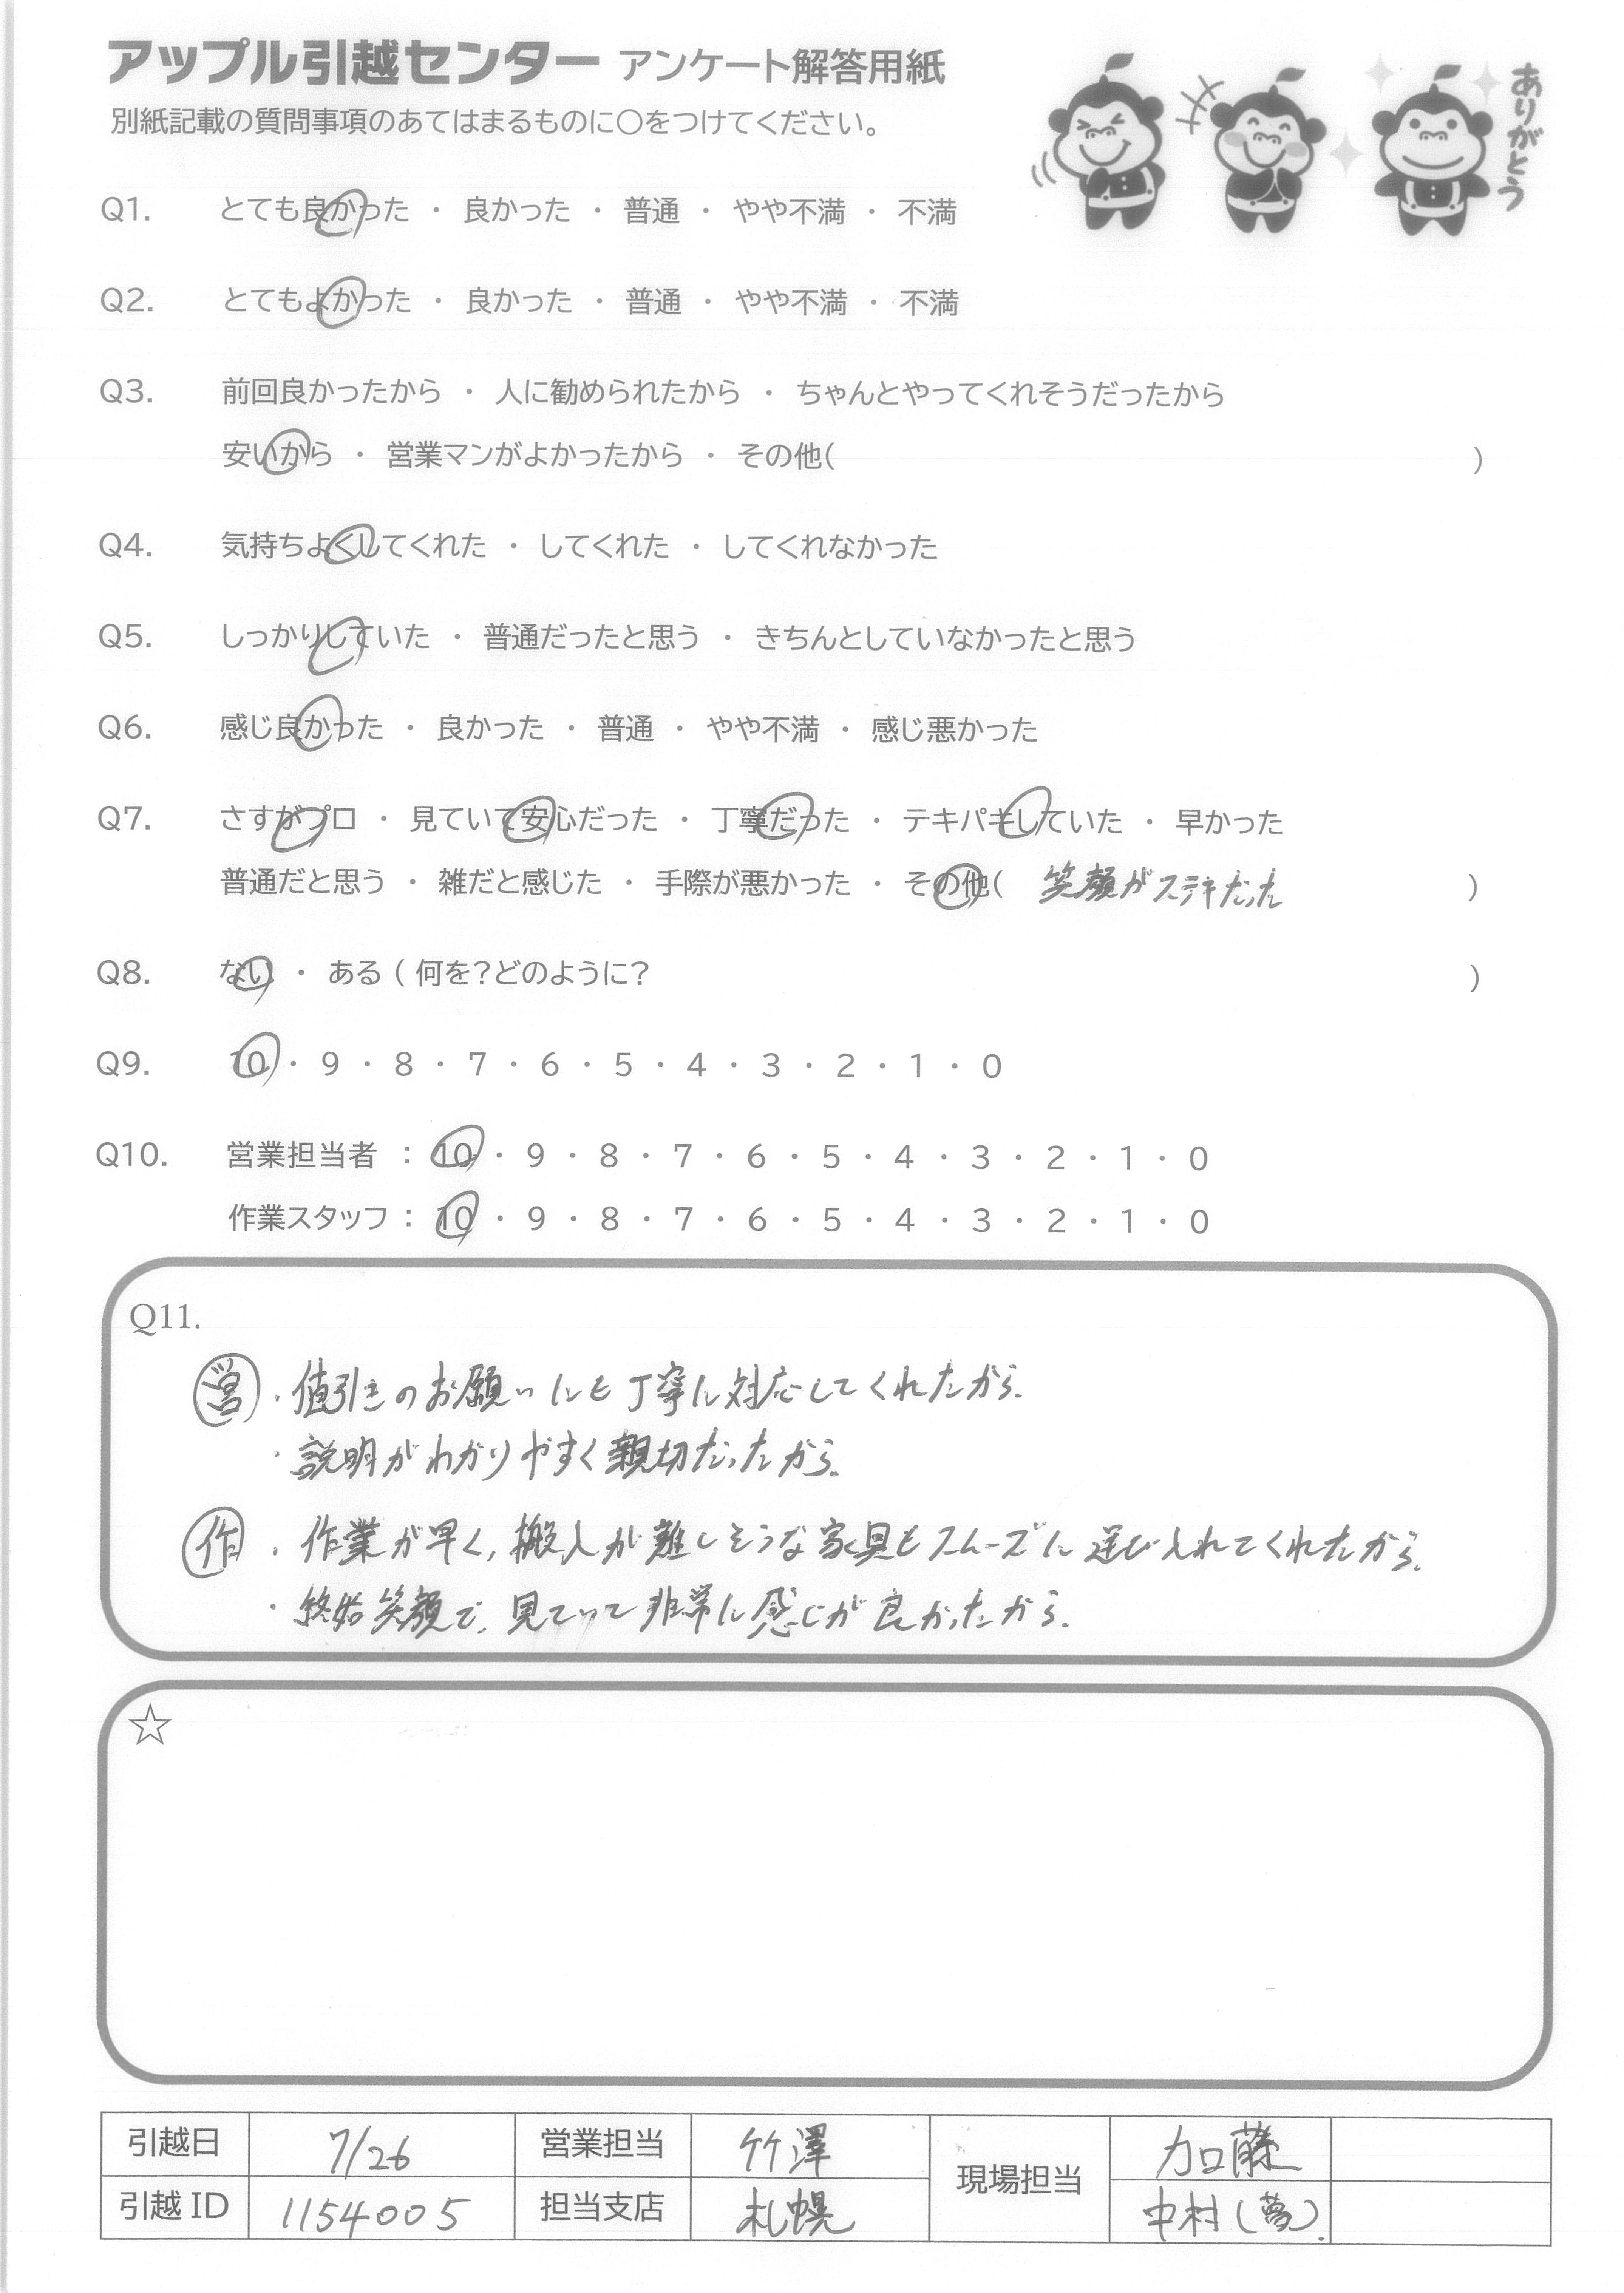 アップル引越センター アンケート解答用紙
別紙記載の質問事項のあてはまるものに〇をつけてください。
ありがとう
Q1. とても良かった ・ 良かった ・ 普通 ・ やや不満 ・ 不満
Q2. とてもよかった ・ 良かった ・ 普通 ・ やや不満 ・ 不満
Q3. 前回良かったから ・ 人に勧められたから ・ ちゃんとやってくれそうだったから
安いから ・ 営業マンがよかったから ・ その他( )
Q4. 気持ちよくしてくれた ・ してくれた ・ してくれなかった
Q5. しっかりしていた ・ 普通だったと思う ・ きちんとしていなかったと思う
Q6. 感じ良かった ・ 良かった ・ 普通 ・ やや不満 ・ 感じ悪かった
Q7. さすがプロ ・ 見ていて安心だった ・ 丁寧だった ・ テキパキしていた ・ 早かった
普通だと思う ・ 雑だと感じた ・ 手際が悪かった ・ その他( 笑顔がステキだった )
Q8. ない ・ ある ( 何を?どのように? )
Q9. 10 ・ 9 ・ 8 ・ 7 ・ 6 ・ 5 ・ 4 ・ 3 ・ 2 ・ 1 ・ 0
Q10. 営業担当者 : 10 ・ 9 ・ 8 ・ 7 ・ 6 ・ 5 ・ 4 ・ 3 ・ 2 ・ 1 ・ 0
作業スタッフ : 10 ・ 9 ・ 8 ・ 7 ・ 6 ・ 5 ・ 4 ・ 3 ・ 2 ・ 1 ・ 0
Q11.
営 ・値引きのお願いにも丁寧に対応してくれたから。
・説明がわかりやすく親切だったから。
作 ・作業が早く、搬入が難しそうな家具もスムーズに運び入れてくれたから。
・終始笑顔で、見ていて非常に感じが良かったから。
☆
引越日 7/26 営業担当 竹澤 現場担当 加藤
引越 ID 1154005 担当支店 札幌 中村(夢).